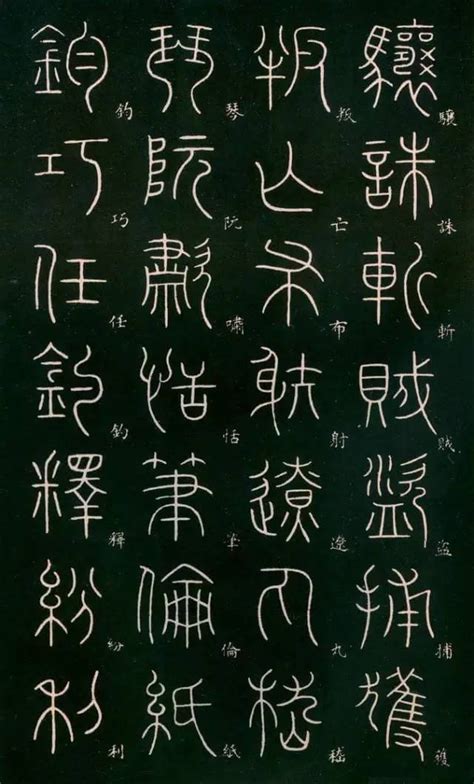 驤誅斬賊盜捕獲
驤誅斬賊盜捕獲
叛亡布射遼丸嵇
叛亡布射遼丸嵇
琴阮嘯恬筆倫紙
琴阮嘯恬筆倫紙
鈞巧任釣釋紛利
鈞巧任釣釋紛利